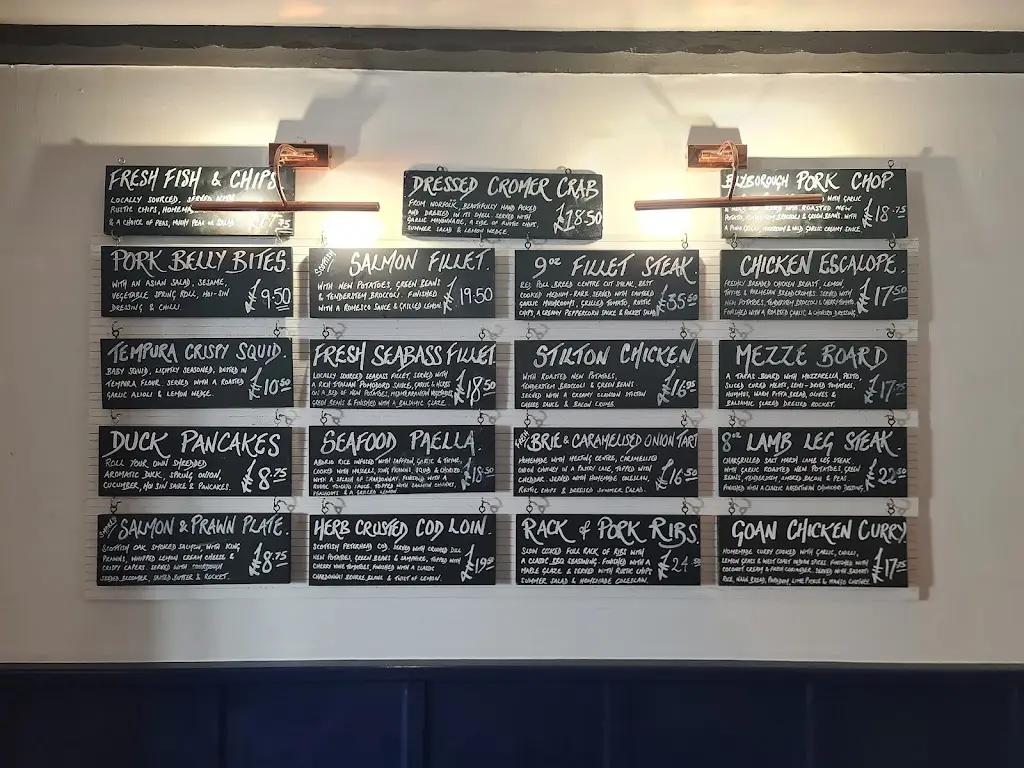 FRESH FISH & CHIPS
LOCALLY SOURCED, SERVED WITH
RUSTIC CHIPS,
& A CHOICE OF PEAS, MUSHY PEAS OR
DRESSED CROMER CRAB
FROM NORFOLK, BEAUTIFULLY HAND PICKED
AND DRESSED IN ITS SHELL. SERVED WITH
GARLIC MAYONNAISE, A SIDE OF RUSTIC CHIPS,
SUMMER SALAD & LEMON WEDGE.
£18.50
PORK CHOP.
WITH GARLIC
ROASTED NEW
POTATO, BROCCOLI & GREEN BEANS, WITH
MUSHROOM & WILD GARLIC CREAMY SAUCE.
£18.75
PORK BELLY BITES.
WITH AN ASIAN SALAD, SESAME,
VEGETABLE SPRING ROLL, HOI-SIN
DRESSING & CHILLI.
£9.50
SCOTTISH SALMON FILLET.
WITH NEW POTATOES, GREEN BEANS
& TENDERSTEM BROCCOLI. FINISHED
WITH A ROMESCO SAUCE & GRILLED LEMON
£19.50
9oz FILLET STEAK.
RED POLL BREED CENTRE CUT STEAK, BEST
COOKED MEDIUM-RARE. SERVED WITH
GARLIC MUSHROOMS, GRILLED TOMATO, RUSTIC
CHIPS, A CREAMY PEPPERCORN SAUCE & ROCKET SALAD
£35.50
CHICKEN ESCALOPE.
FRESHLY BREADED CHICKEN BREAST, LEMON,
THYME & PARMESAN BREADCRUMBS. SERVED WITH
NEW POTATOES, TENDERSTEM BROCCOLI &
FINISHED WITH A ROASTED GARLIC & CHORIZO DRESSING.
£17.50
TEMPURA CRISPY SQUID.
BABY SQUID, LIGHTLY SEASONED, DUSTED IN
TEMPURA FLOUR. SERVED WITH A ROASTED
GARLIC AIOLI & LEMON WEDGE.
£10.50
FRESH SEABASS FILLET
LOCALLY SOURCED SEABASS FILLET, SERVED WITH
A RICH ITALIAN POMODORO SAUCE, GARLIC & HERBS
ON A BED OF NEW POTATOES, MEDITERRANEAN VEGETABLES,
GREEN BEANS & FINISHED WITH A BALSAMIC GLAZE.
£18.50
STILTON CHICKEN
WITH ROASTED NEW POTATOES,
TENDERSTEM BROCCOLI & GREEN BEANS.
SERVED WITH A CREAMY STILTON
CHEESE SAUCE & BACON CRUMB.
£16.95
MEZZE BOARD
A TAPAS BOARD WITH MOZZARELLA, PESTO,
SLICED CURED MEATS, SEMI-DRIED TOMATOES,
HUMMUS, WARM PITTA BREAD, OLIVES &
BALSAMIC GLAZED DRESSED ROCKET.
£17.75
DUCK PANCAKES
ROLL YOUR OWN SHREDDED
AROMATIC DUCK, SPRING ONION,
CUCUMBER, HOI SIN SAUCE & PANCAKES.
£8.75
SEAFOOD PAELLA.
ARBORIO RICE INFUSED WITH SAFFRON, GARLIC & THYME,
COOKED WITH MUSSELS, KING PRAWNS, SQUID & CHORIZO
WITH A SPLASH OF CHARDONNAY. FINISHED WITH A
& A GRILLED LEMON.
£18.50
BRIE & CARAMELISED ONION TART
HOMEMADE WITH MELTING CENTRE, CARAMELISED
ONION CHUTNEY IN A PASTRY CASE, TOPPED WITH
CHEDDAR. SERVED WITH HOMEMADE COLESLAW,
RUSTIC CHIPS & DRESSED SUMMER SALAD.
£16.50
8oz LAMB LEG STEAK.
CHARGRILLED SALT MARSH LAMB LEG STEAK
WITH GARLIC ROASTED NEW POTATOES, GREEN
BEANS, TENDERSTEM, SMOKED BACON & PEAS.
FINISHED WITH A CLASSIC ARGENTINIAN CHIMICHURRI DRESSING.
£22.50
SALMON & PRAWN PLATE.
SCOTTISH OAK SMOKED SALMON, WITH KING
PRAWNS, WHIPPED LEMON CREAM CHEESE &
CRISPY CAPERS. SERVED WITH SOURDOUGH
SEEDED BLOOMER, SALTED BUTTER & ROCKET.
£8.75
HERB CRUSTED COD LOIN.
SCOTTISH PETERHEAD COD, SERVED WITH CRUSHED DILL
NEW POTATOES, GREEN BEANS & SAMPHIRE, TOPPED WITH
CHERRY VINE TOMATOES, FINISHED WITH A CLASSIC
CHARDONNAY BEURRE BLANC & TWIST OF LEMON.
£19.50
RACK of PORK RIBS.
SLOW COOKED FULL RACK OF RIBS WITH
A CLASSIC BBQ SEASONING. FINISHED WITH A
MAPLE GLAZE & SERVED WITH RUSTIC CHIPS
SUMMER SALAD & HOMEMADE COLESLAW.
£24.50
GOAN CHICKEN CURRY.
HOMEMADE CURRY COOKED WITH GARLIC, CHILLI,
LEMON GRASS & WEST COAST INDIAN SPICES, FINISHED WITH
COCONUT CREAM & FRESH CORIANDER. SERVED WITH BASMATI
RICE, NAAN BREAD, POPPADOM, LIME PICKLE & MANGO CHUTNEY.
£17.75